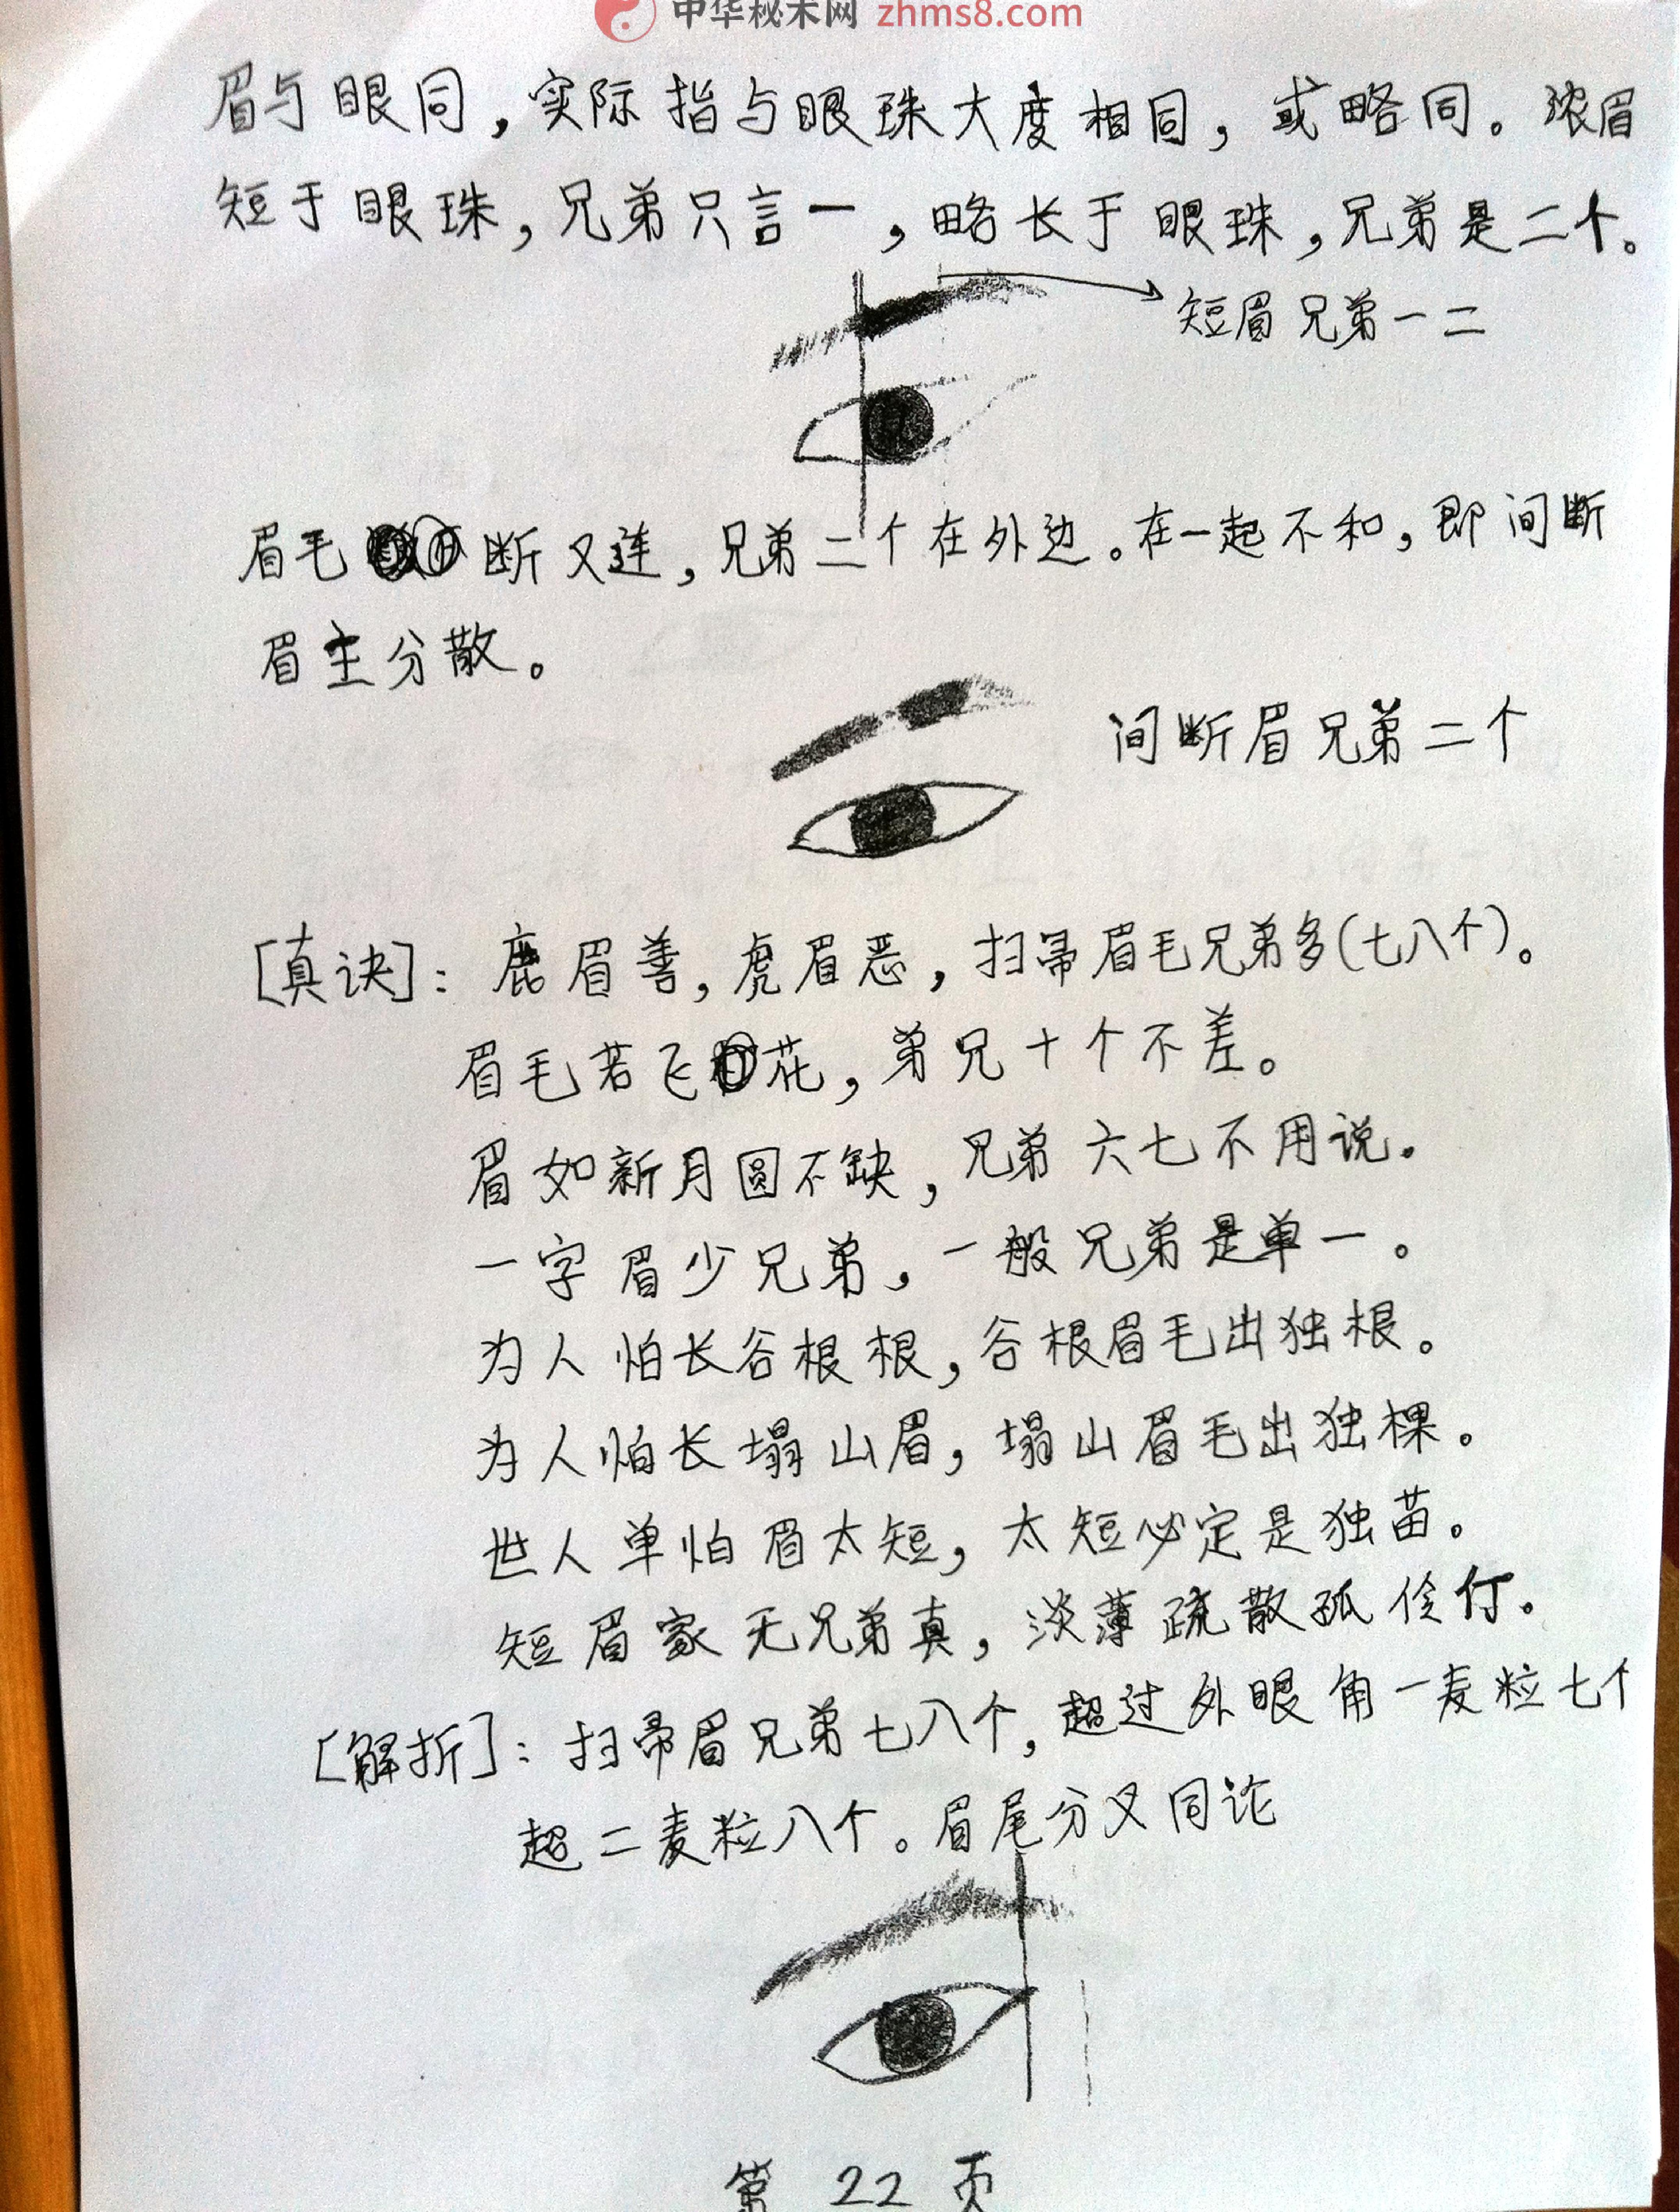 中华秘术网 zhms8.com
眉与眼同，实际指与眼珠大度相同，或略同。浓眉
短于眼珠，兄弟只言一，略长于眼珠，兄弟是二个。
短眉兄弟一二
眉毛断又连，兄弟二个在外边。在一起不和，即间断
眉主分散。
间断眉兄弟二个
[真诀]：鹿眉善，虎眉恶，扫帚眉毛兄弟多(七八个)。
眉毛若飞花，弟兄十个不差。
眉如新月圆不缺，兄弟六七不用说。
一字眉少兄弟，一般兄弟是单一。
为人怕长谷根根，谷根眉毛出独根。
为人怕长塌山眉，塌山眉毛出独棵。
世人单怕眉太短，太短必定是独苗。
短眉家无兄弟真，淡薄疏散孤伶仃。
[解折]：扫帚眉兄弟七八个，超过外眼角一麦粒七个
超二麦粒八个。眉尾分叉同论
第 22 页